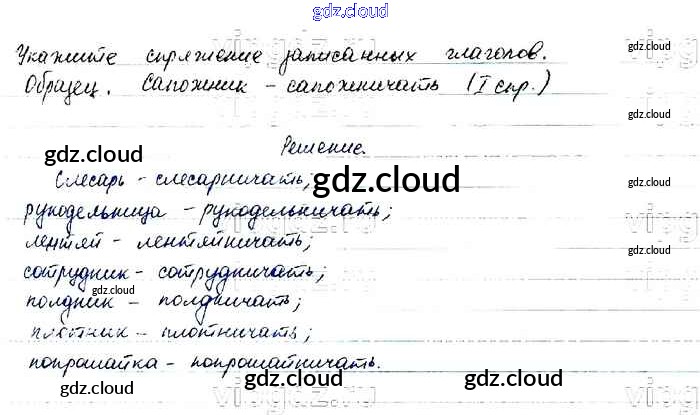 gdz.cloud
Укажите спряжение записанных глаголов.
gdz.cloud
Образец. Сапожник - сапожничать (I спр.)
gdz.cloud
Решение.
gdz.cloud
gdz.cloud
gdz.cloud
Слесарь - слесарничать;
рукодельница - рукодельничать;
gdz.cloud
лентяй - лентяйничать;
gdz.cloud
сотрудник - сотрудничать;
gdz.cloud
полдник - полдничать;
плотник - плотничать;
попрошайка - попрошайничать.
gdz.cloud
gdz.cloud
gdz.cloud